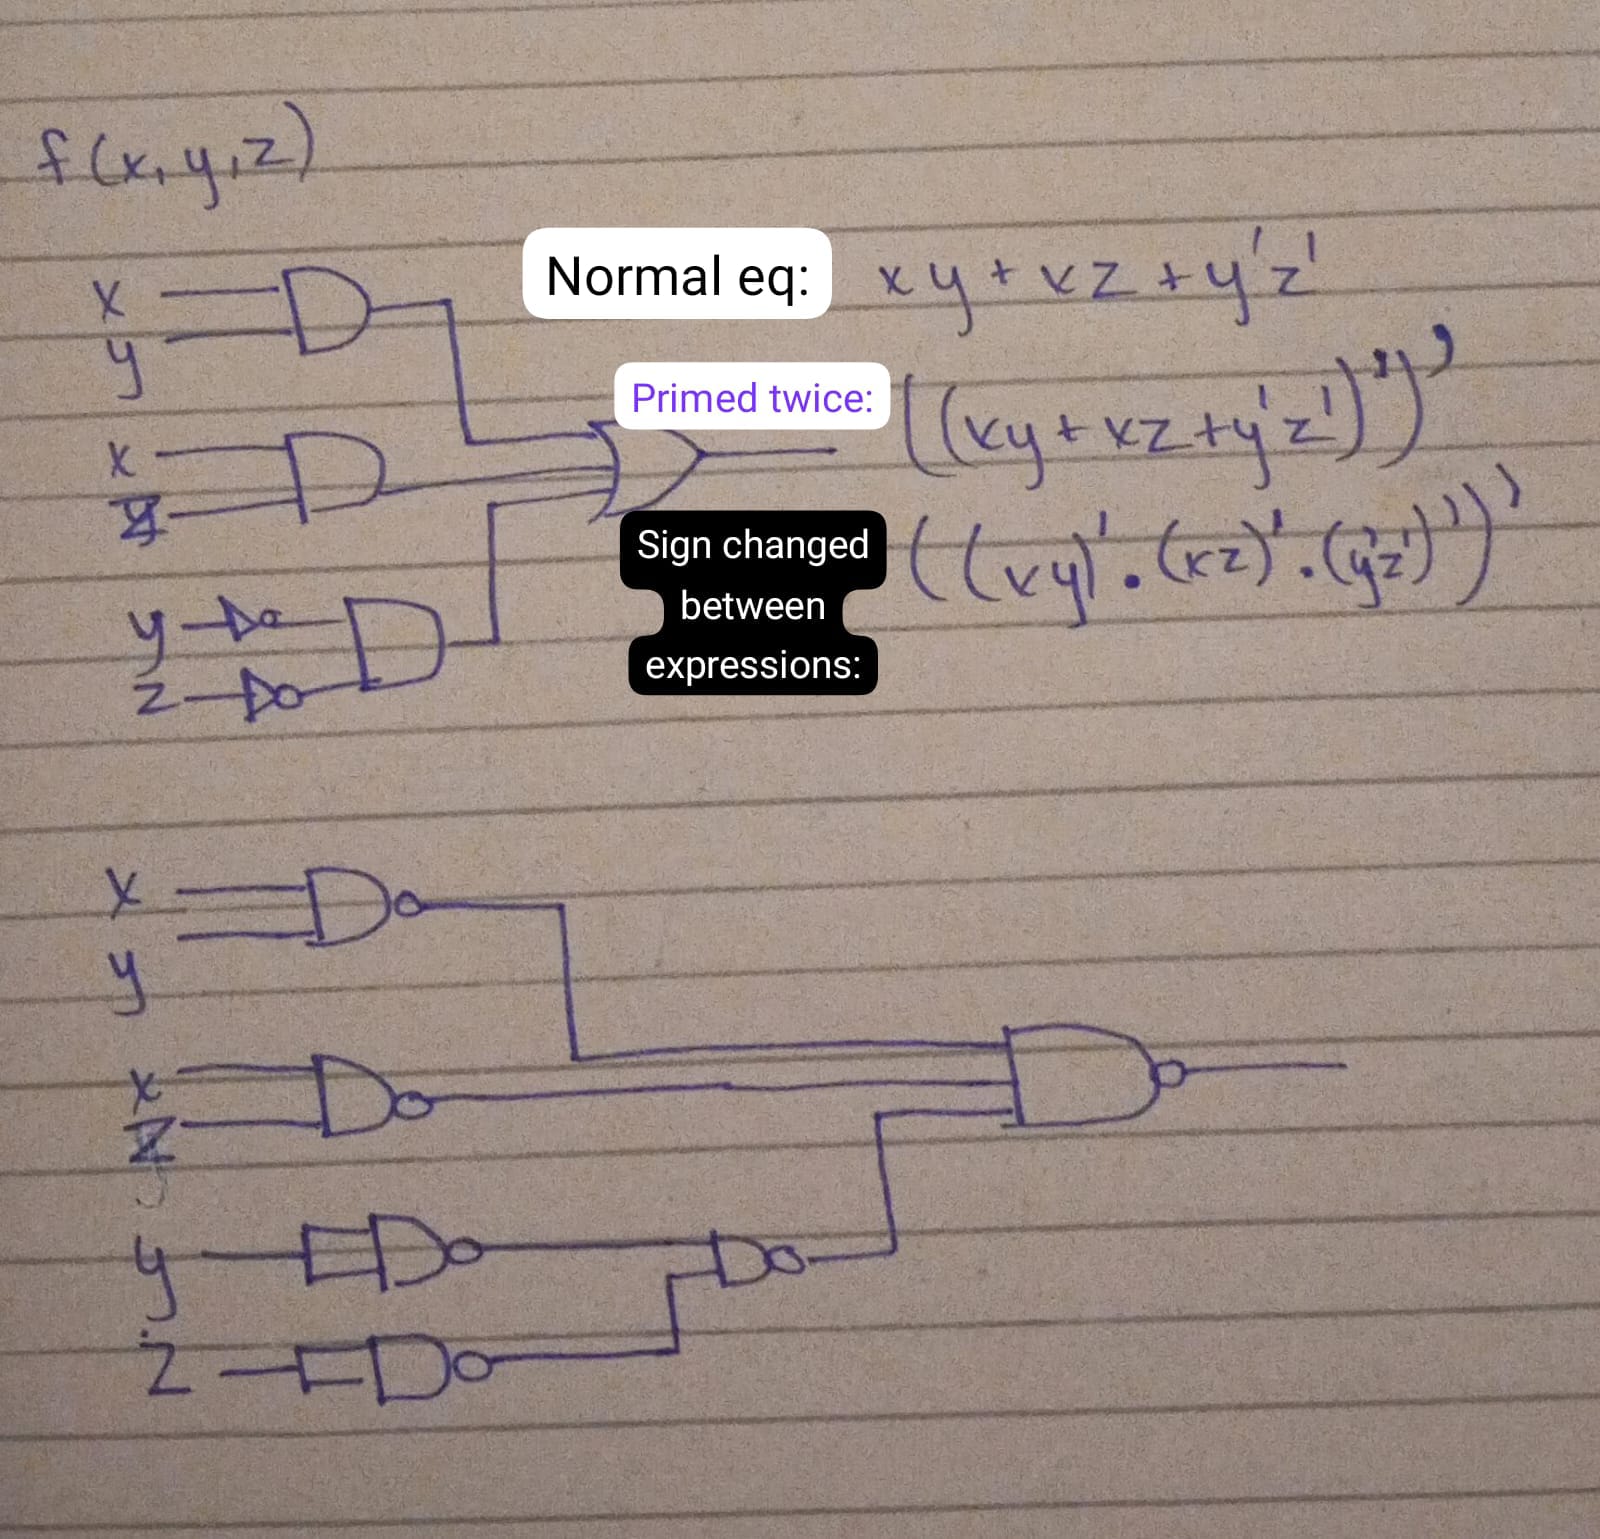 f(x, y, z)
Normal eq: xy + xz + y'z'
x
y
Primed twice: ((xy + xz + y'z')')'
x
z
Sign changed
between
expressions:
((xy)' . (xz)' . (y'z')')'
y
z
x
y
x
z
y
z